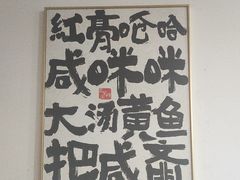 紅膏呛哈
咸咪咪
大汤黄鱼
把咸